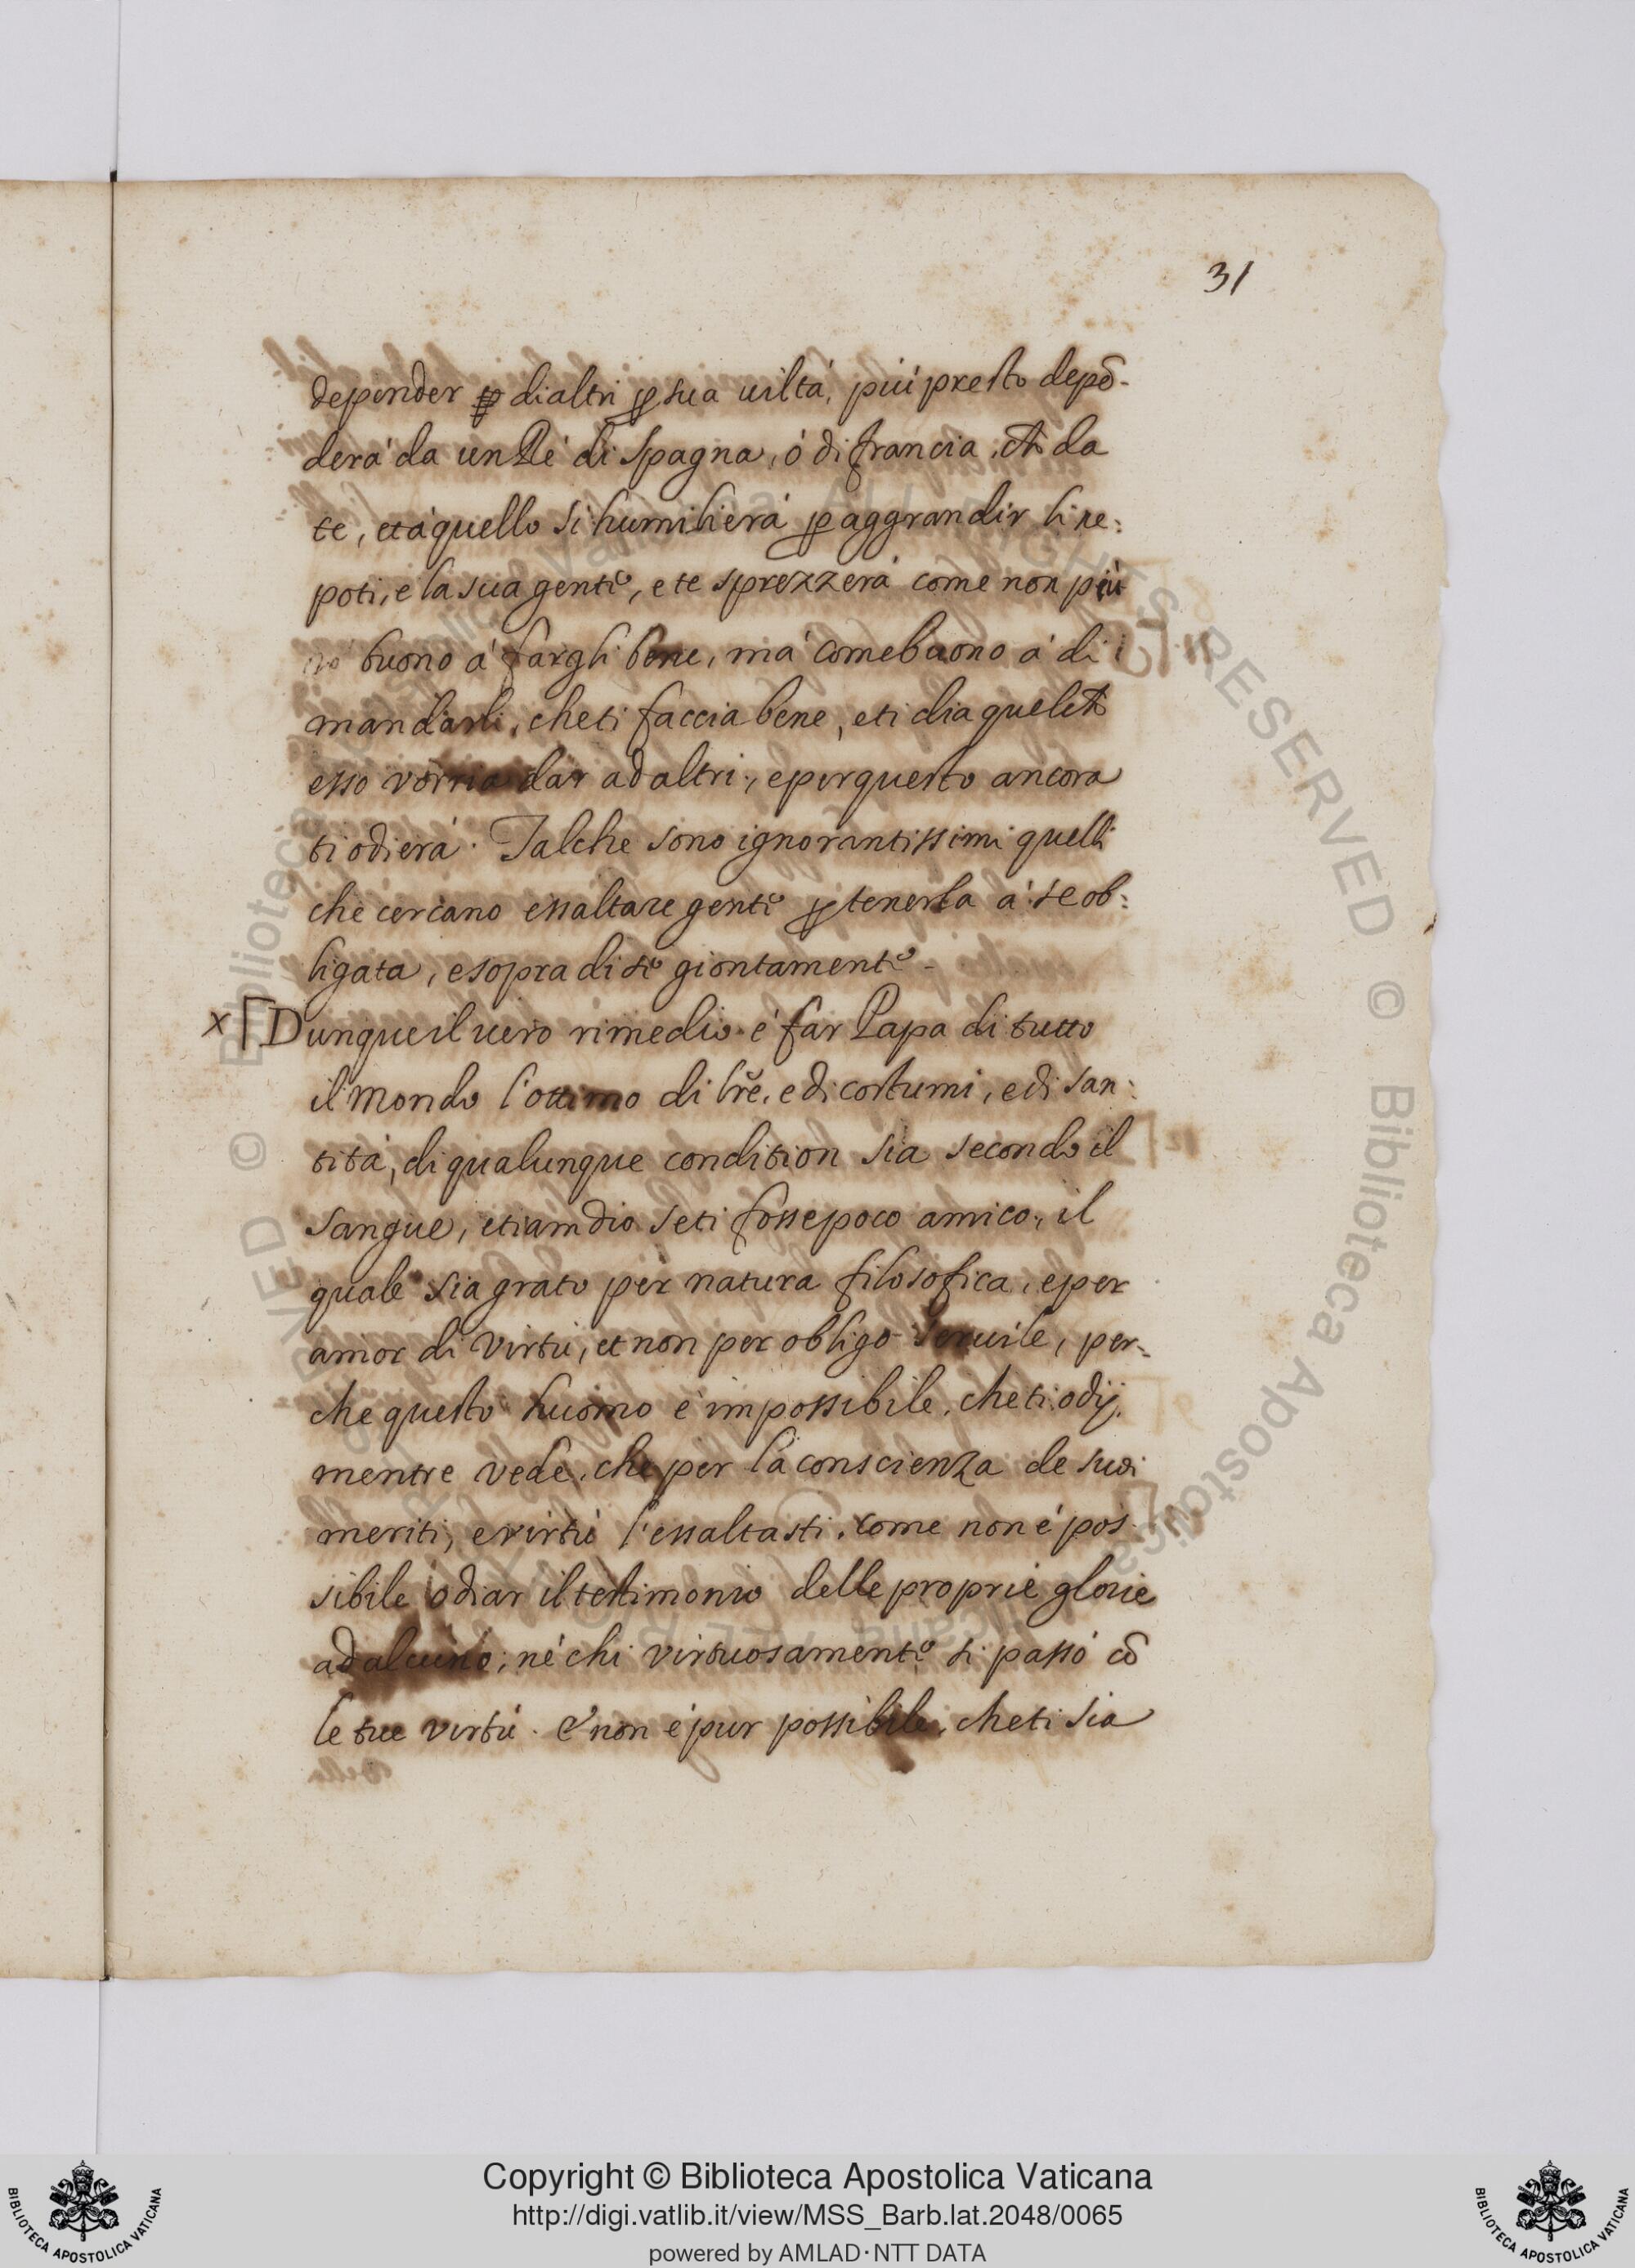 31
depender di altri ꝑ sua uiltá, piú presto depẽ-
derá da un Ré di Spagna, ó di francia, ch̃ da
te, et á quello si humilierá ꝑ aggrandir li ne:
poti, e la sua gente, e te sprezzerá come non piú
buono á fargli bene, má come buono á di
mandarli, che ti faccia bene, e ti dia quel ch̃
esso vorria dar ad altri, e per questo ancora
ti odierá. Talche sono ignorantissimi quelli
che cercano essaltare gente ꝑ tenerla á se ob:
ligata, e sopra di se giontamente.
x Dunque il uero rimedio é far Papa di tutto
il Mondo l'ottimo di lr̃e, e di costumi, e di san:
titá, di qualunque condition sia secondo il
sangue, etiamdio se ti fosse poco amico, il
quale sia grato per natura filosofica, e per
amor di virtú, et non per obligo seruile, per-
che questo huomo é impossibile, che ti odij,
mentre vede, che per la conscienza de suoi
meriti, e virtú l'essaltasti, come non é pos-
sibile odiar il testimonio delle proprie glorie
ad alcuno, né chi virtuosamente ti passó cõ
le tue virtú. E non é pur possibile, che ti sia
Copyright © Biblioteca Apostolica Vaticana
http://digi.vatlib.it/view/MSS_Barb.lat.2048/0065
powered by AMLAD·NTT DATA
BIBLIOTECA APOSTOLICA VATICANA
BIBLIOTECA APOSTOLICA VATICANA